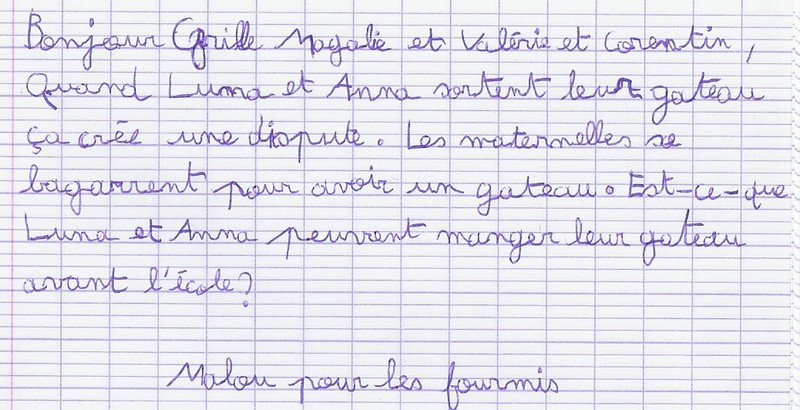 Bonjour Cyrille Magalie et Valérie et Corentin,
Quand Luna et Anna sortent leur gateau
ça crée une dispute. Les maternelles se
bagarrent pour avoir un gateau. Est-ce-que
Luna et Anna peuvent manger leur gateau
avant l'école?
Malou pour les fourmis